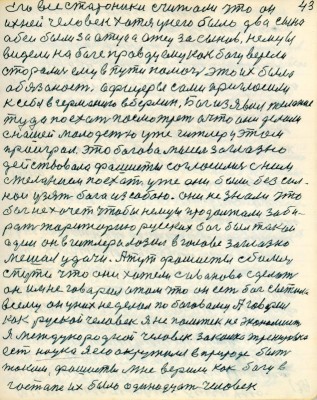 43
Его все староники считали это он
ихней человек хотя у него было два сына
обеи были за отца а отец за сынив, немцы
видели на баге правду ему как богу верели
старались ему в пути помоч, это их была
обязаность. афицеры сами пригласили
к себе в германию в берлин, бог изявил желание
туда поехат посмотрет а что они делали
с нашей молодежю уже гитлер у этом
праиграл. Это богова мысел заглазно
действовала фашисты согласилис с ним
желанием поехат, уже они были без сил-
ном узят бога из собою. они не знали это
бог не хочет чтобы немцы продолжали заби-
рат тариторию русских бог был такой
один он в гитлера лозил в голове заглазно
мешал удачи. А тут фашисты сбились
с пути что они хотели с ивановю сделат
он им не говарил о том что он ест бог светила
всему он у них неделял по баговому. А говорил
как русский человек я не политек не экономист
Я международной человек закалка тренировка
ест наука я его окружил в природе быт
таким, фашисты мне верили как богу в
гостапе их было одиннадцат человек